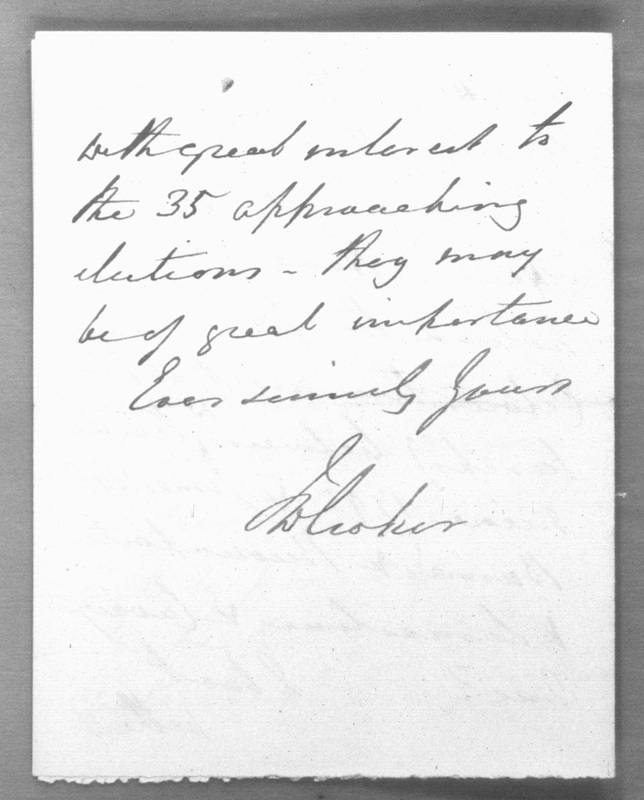 with great interest to
the 35 approaching
elections – they may
be of great importance
Ever sincerely Yours
JW Croker